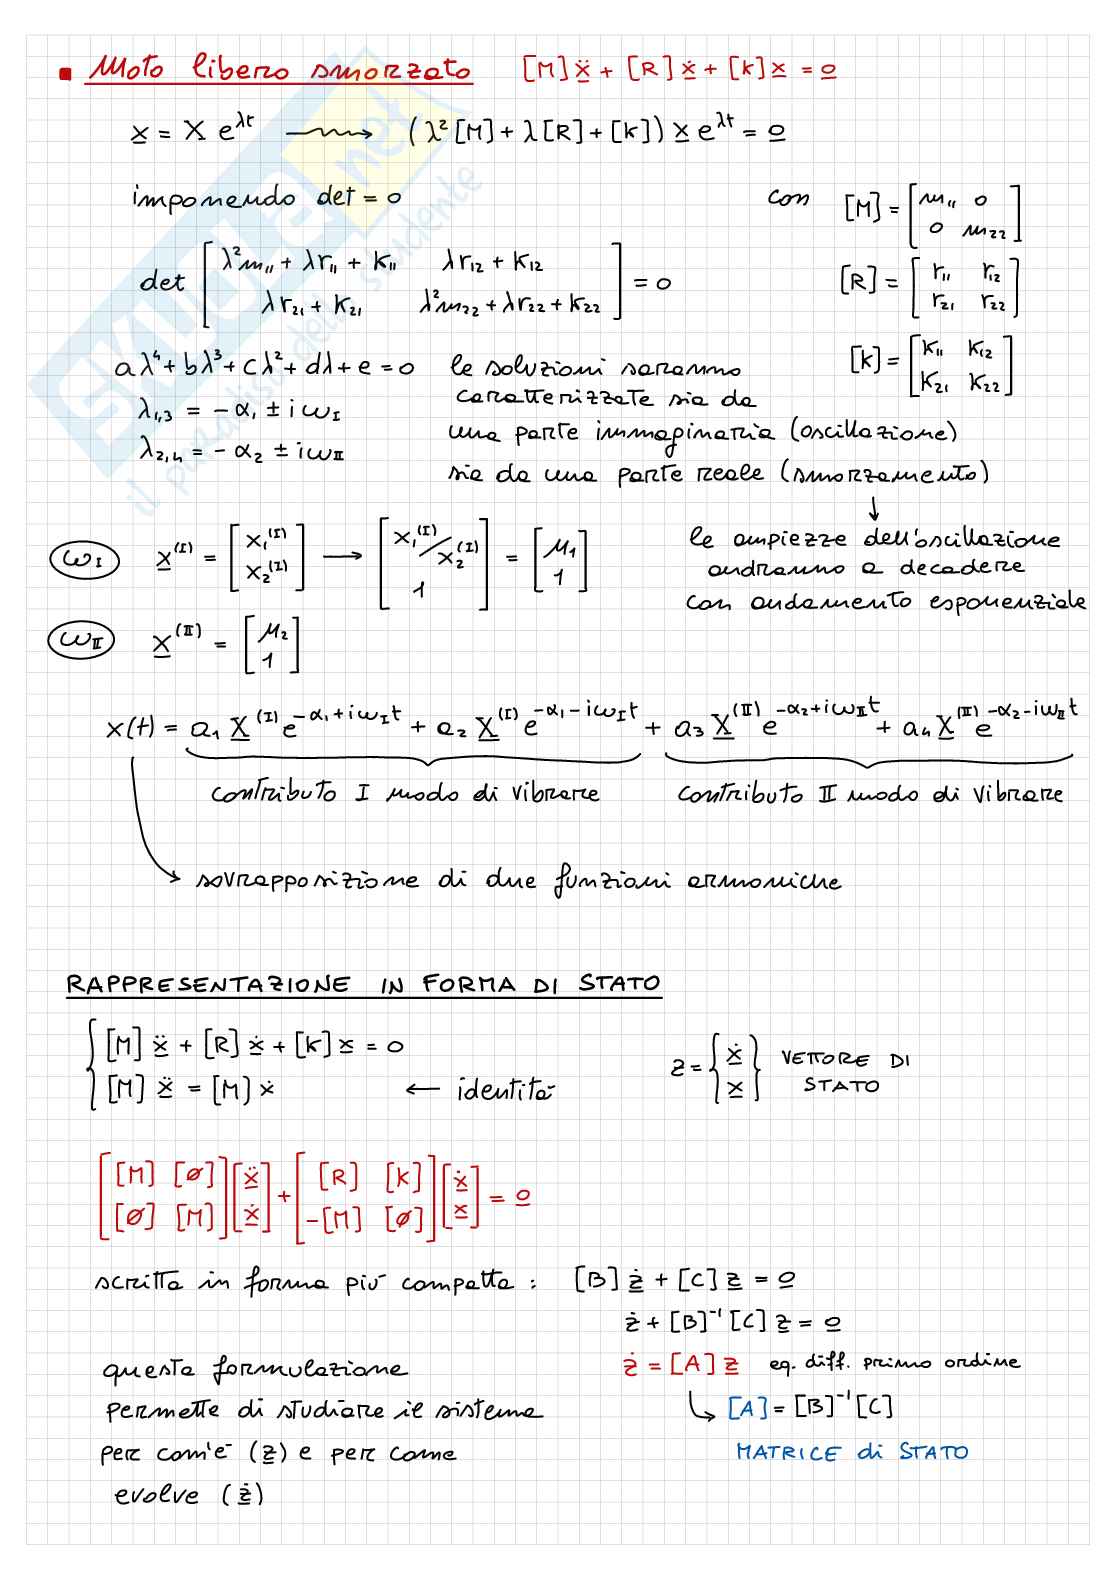 ▪ Moto libero smorzato [M]ẍ + [R]ẋ + [K]x = 0
x = X e^λt ⟶ (λ²[M] + λ[R] + [K]) x e^λt = 0
imponendo det = 0
con [M] = [m₁₁ 0
0 m₂₂]
det [λ²m₁₁ + λr₁₁ + K₁₁ λr₁₂ + K₁₂
λr₂₁ + K₂₁ λ²m₂₂ + λr₂₂ + K₂₂] = 0
[R] = [r₁₁ r₁₂
r₂₁ r₂₂]
[K] = [K₁₁ K₁₂
K₂₁ K₂₂]
aλ⁴ + bλ³ + cλ² + dλ + e = 0
λ₁,₃ = - α₁ ± i ω_I
λ₂,₄ = - α₂ ± i ω_II
le soluzioni saranno
caratterizzate sia da
una parte immaginaria (oscillazione)
sia da una parte reale (smorzamento)
↓
le ampiezze dell'oscillazione
andranno a decadere
con andamento esponenziale
ω_I x^(I) = [x₁^(I)
x₂^(I)] ⟶ [x₁^(I)/x₂^(I)
1] = [μ₁
1]
ω_II x^(II) = [μ₂
1]
x(t) = a₁ X^(I) e^(-α₁+iω_I t) + a₂ X^(I) e^(-α₁-iω_I t) + a₃ X^(II) e^(-α₂+iω_II t) + a₄ X^(II) e^(-α₂-iω_II t)
contributo I modo di vibrare contributo II modo di vibrare
sovrapposizione di due funzioni armoniche
RAPPRESENTAZIONE IN FORMA DI STATO
{ [M] ẍ + [R] ẋ + [K] x = 0
[M] ẍ = [M] ẋ ← identità
z = {ẋ
x} VETTORE DI
STATO
[[M] [∅]
[∅] [M]] [ẍ
ẋ] + [[R] [K]
-[M] [∅]] [ẋ
x] = 0
scritta in forma più compatta : [B] ż + [C] z = 0
ż + [B]⁻¹ [C] z = 0
ż = [A] z eq. diff. primo ordine
↳ [A] = [B]⁻¹ [C]
MATRICE di STATO
questa formulazione
permette di studiare il sistema
per com'è (z) e per come
evolve (ż)
skuola.net
il paradiso dello studente